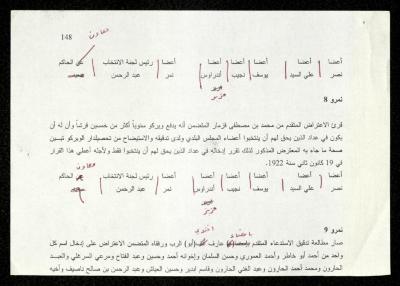 148
معاون
أعضا أعضا أعضا أعضا أعضا أعضا رئيس لجنة الانتخاب عن الحاكم
نصر علي السيد يوسف نجيب أندراوس نمر عبد الرحمن
عزيز
نمرو 8
قرئ الاعتراض المتقدم من محمد بن مصطفى قزمار المتضمن أنه يدفع ويركو سنوياً أكثر من خمسين قرشاً وأن له أن
يكون في عداد الذين يحق لهم أن ينتخبوا أعضاء المجلس البلدي ولدى تدقيقه والاستيضاح من تحصيلدار الويركو تبين
صحة ما جاء به المعترض المذكور لذلك تقرر إدخاله في عداد الذين يحق لهم أن ينتخبوا فقط ولأجله أعطي هذا القرار
في 19 كانون ثاني سنة 1922.
معاون
أعضا أعضا أعضا أعضا أعضا أعضا رئيس لجنة الانتخاب عن الحاكم
نصر علي السيد يوسف نجيب أندراوس نمر عبد الرحمن
عزيز
نمرو 9
بامضاء افندي
صار مطالعة تدقيق الاستدعاء المتقدم عارف (أبو) الرب ورفقاه المتضمن الاعتراض على إدخال اسم كل
واحد من أحمد أبو خاطر وأحمد العموري وحسن السلمان وإخوانه أحمد وحسين وعبد الفتاح ومرعي السرغلي والعبد
الحارون ومحمد أحمد الحارون وعبد الغني الحارون وقاسم ابدير وحسين العياش وعبد الرحمن بن صالح ناصيف وأخيه